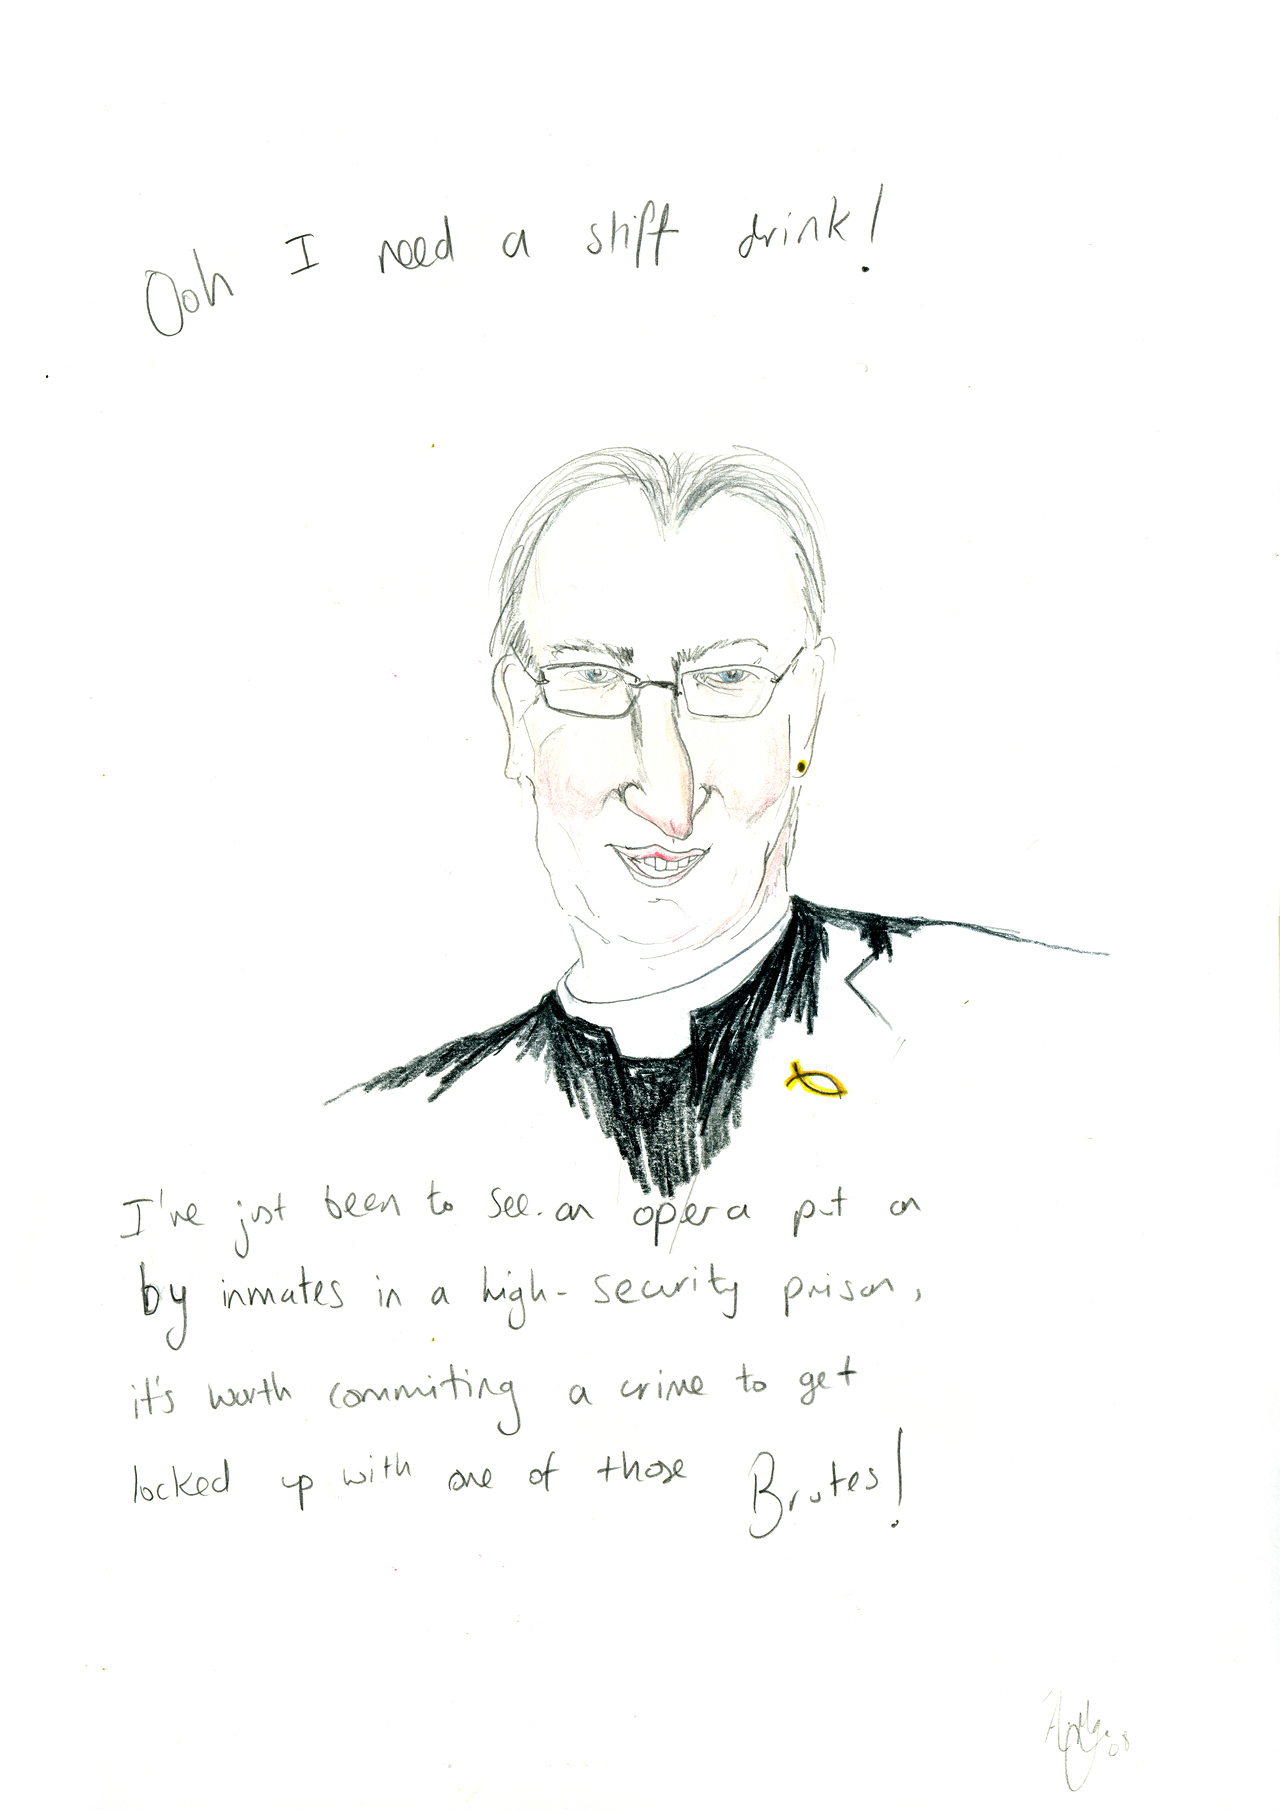 Ooh I need a stiff drink!
I've just been to see. an opera put on
by inmates in a high-security prison,
it's worth commiting a crime to get
locked up with one of those Brutes!
08